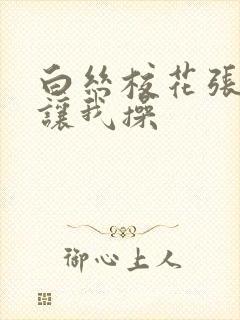 白絲校花張
讓我操
御心上人